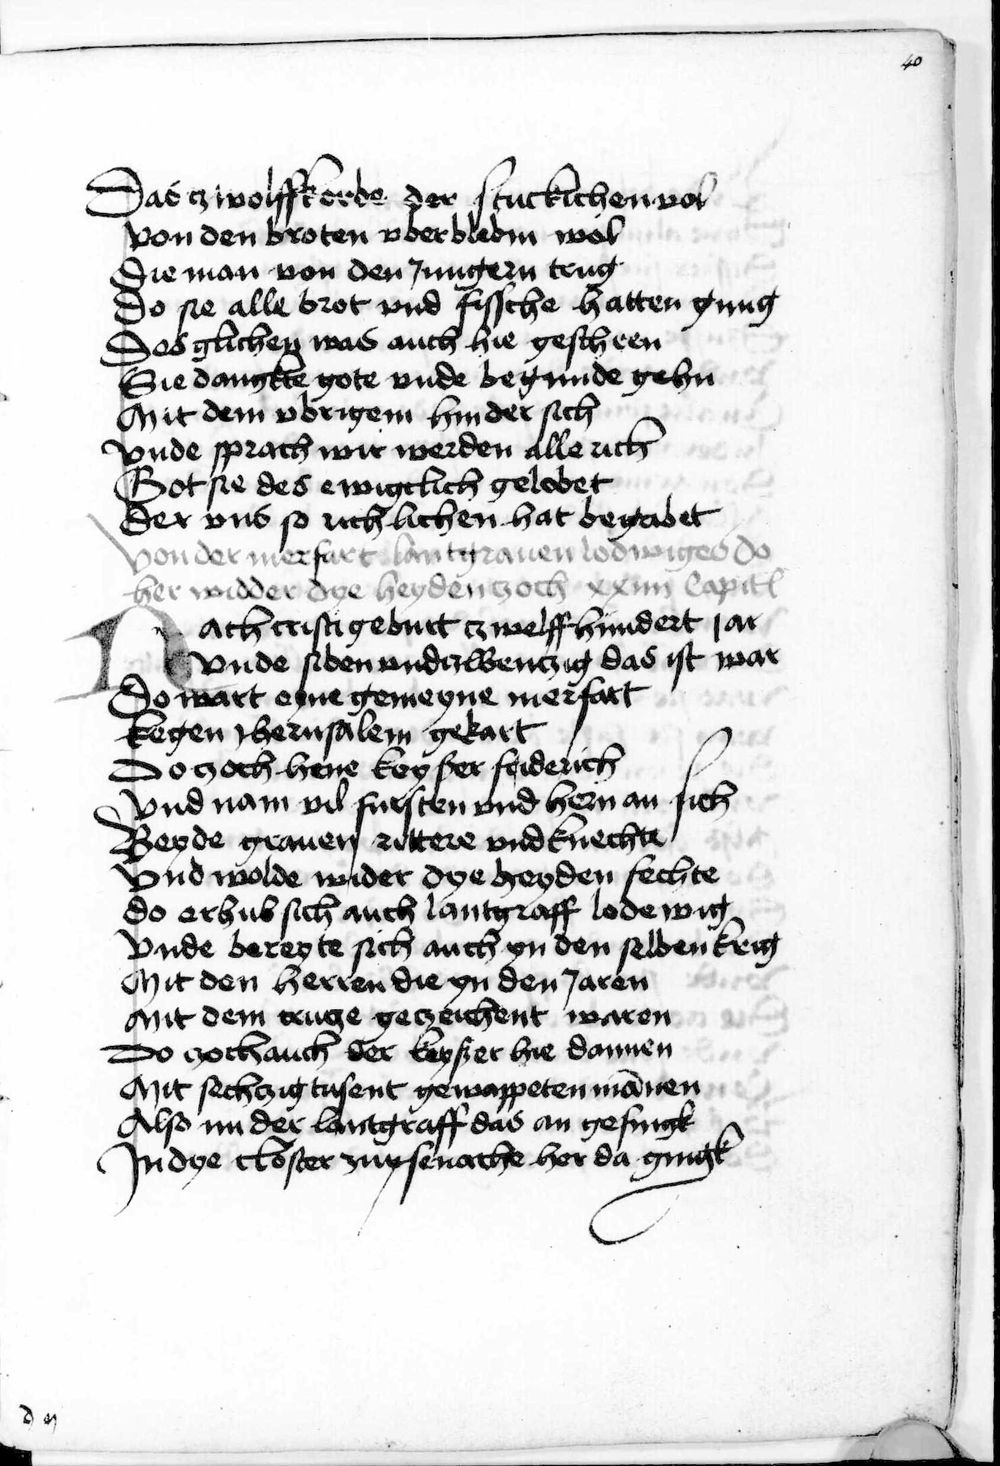 40
Das czwolffkorbe der stucklichen vol
Von den broten vberblebin wol
Die man von den Jungern trug
Do sie alle brot vnd fissche hatten gnug
Des glichen was auch hie gescheen
Sie dangkte gote vnde begunde gehn
Mit dem vbrigem hinder sich
Vnde sprach wir werden alle rich
Got sie des ewigclich gelobet
Der vns so richlichen hat begabet
Von der merfart lantgrauen lodwiges do
her widder dye heyden czoch xxiiii Capitl
Nach cristi geburt czwelffhundert Jar
Vnde siben vndczwenczig das ist war
Do wart eyne gemeyne merfart
kegen Jherusalem gekart
Do czoch hene keyßer friderich
Vnd nam vil fursten vnd hern an sich
Beyde grauen rittere vnd knechte
Vnd wolde wider dye heyden fechte
do erhub sich auch lantgraff lodewig
Vnde bereyte sich auch yn den selben krig
Mit den herren die yn den Jaren
Mit dem crucze geczeichent waren
Do czoch auch der keyßer hie dannen
Mit sechczig tusent gewappeten mānen
Also nu der lantgraff das an gefingk
In dye closter zu ysenache her da gingk